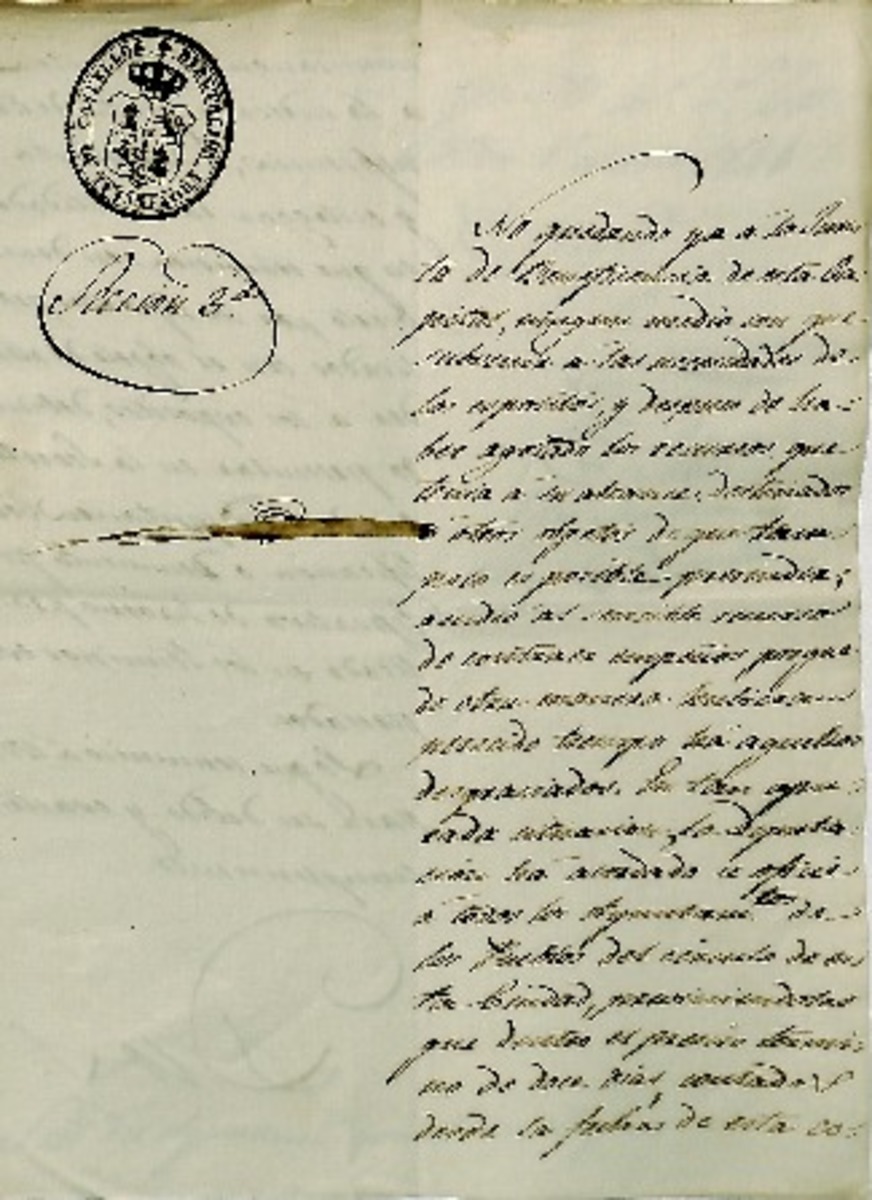 Sección 3.ª
No quedando ya a la Jun-
ta de Beneficencia de esta Ca-
pital, ningun medio con que
subvenir a las necesidades de
los expositos, y despues de ha-
ber agotado los recursos que
tenia a su alcance, destinados
a otros objetos de que tam-
poco es posible prescindir,
acudio al sensible recurso
de contraer empeños porque
de otra manera hubieran
perecido tiempo ha aquellos
desgraciados. En tan apu-
rada situacion, la Diputa-
cion ha acordado se oficie
a todos los Ayuntam.tos de
los Pueblos del circulo de es-
ta Ciudad, previniendoles
que dentro el preciso termi-
no de doce dias, contados
desde la fecha de esta co-